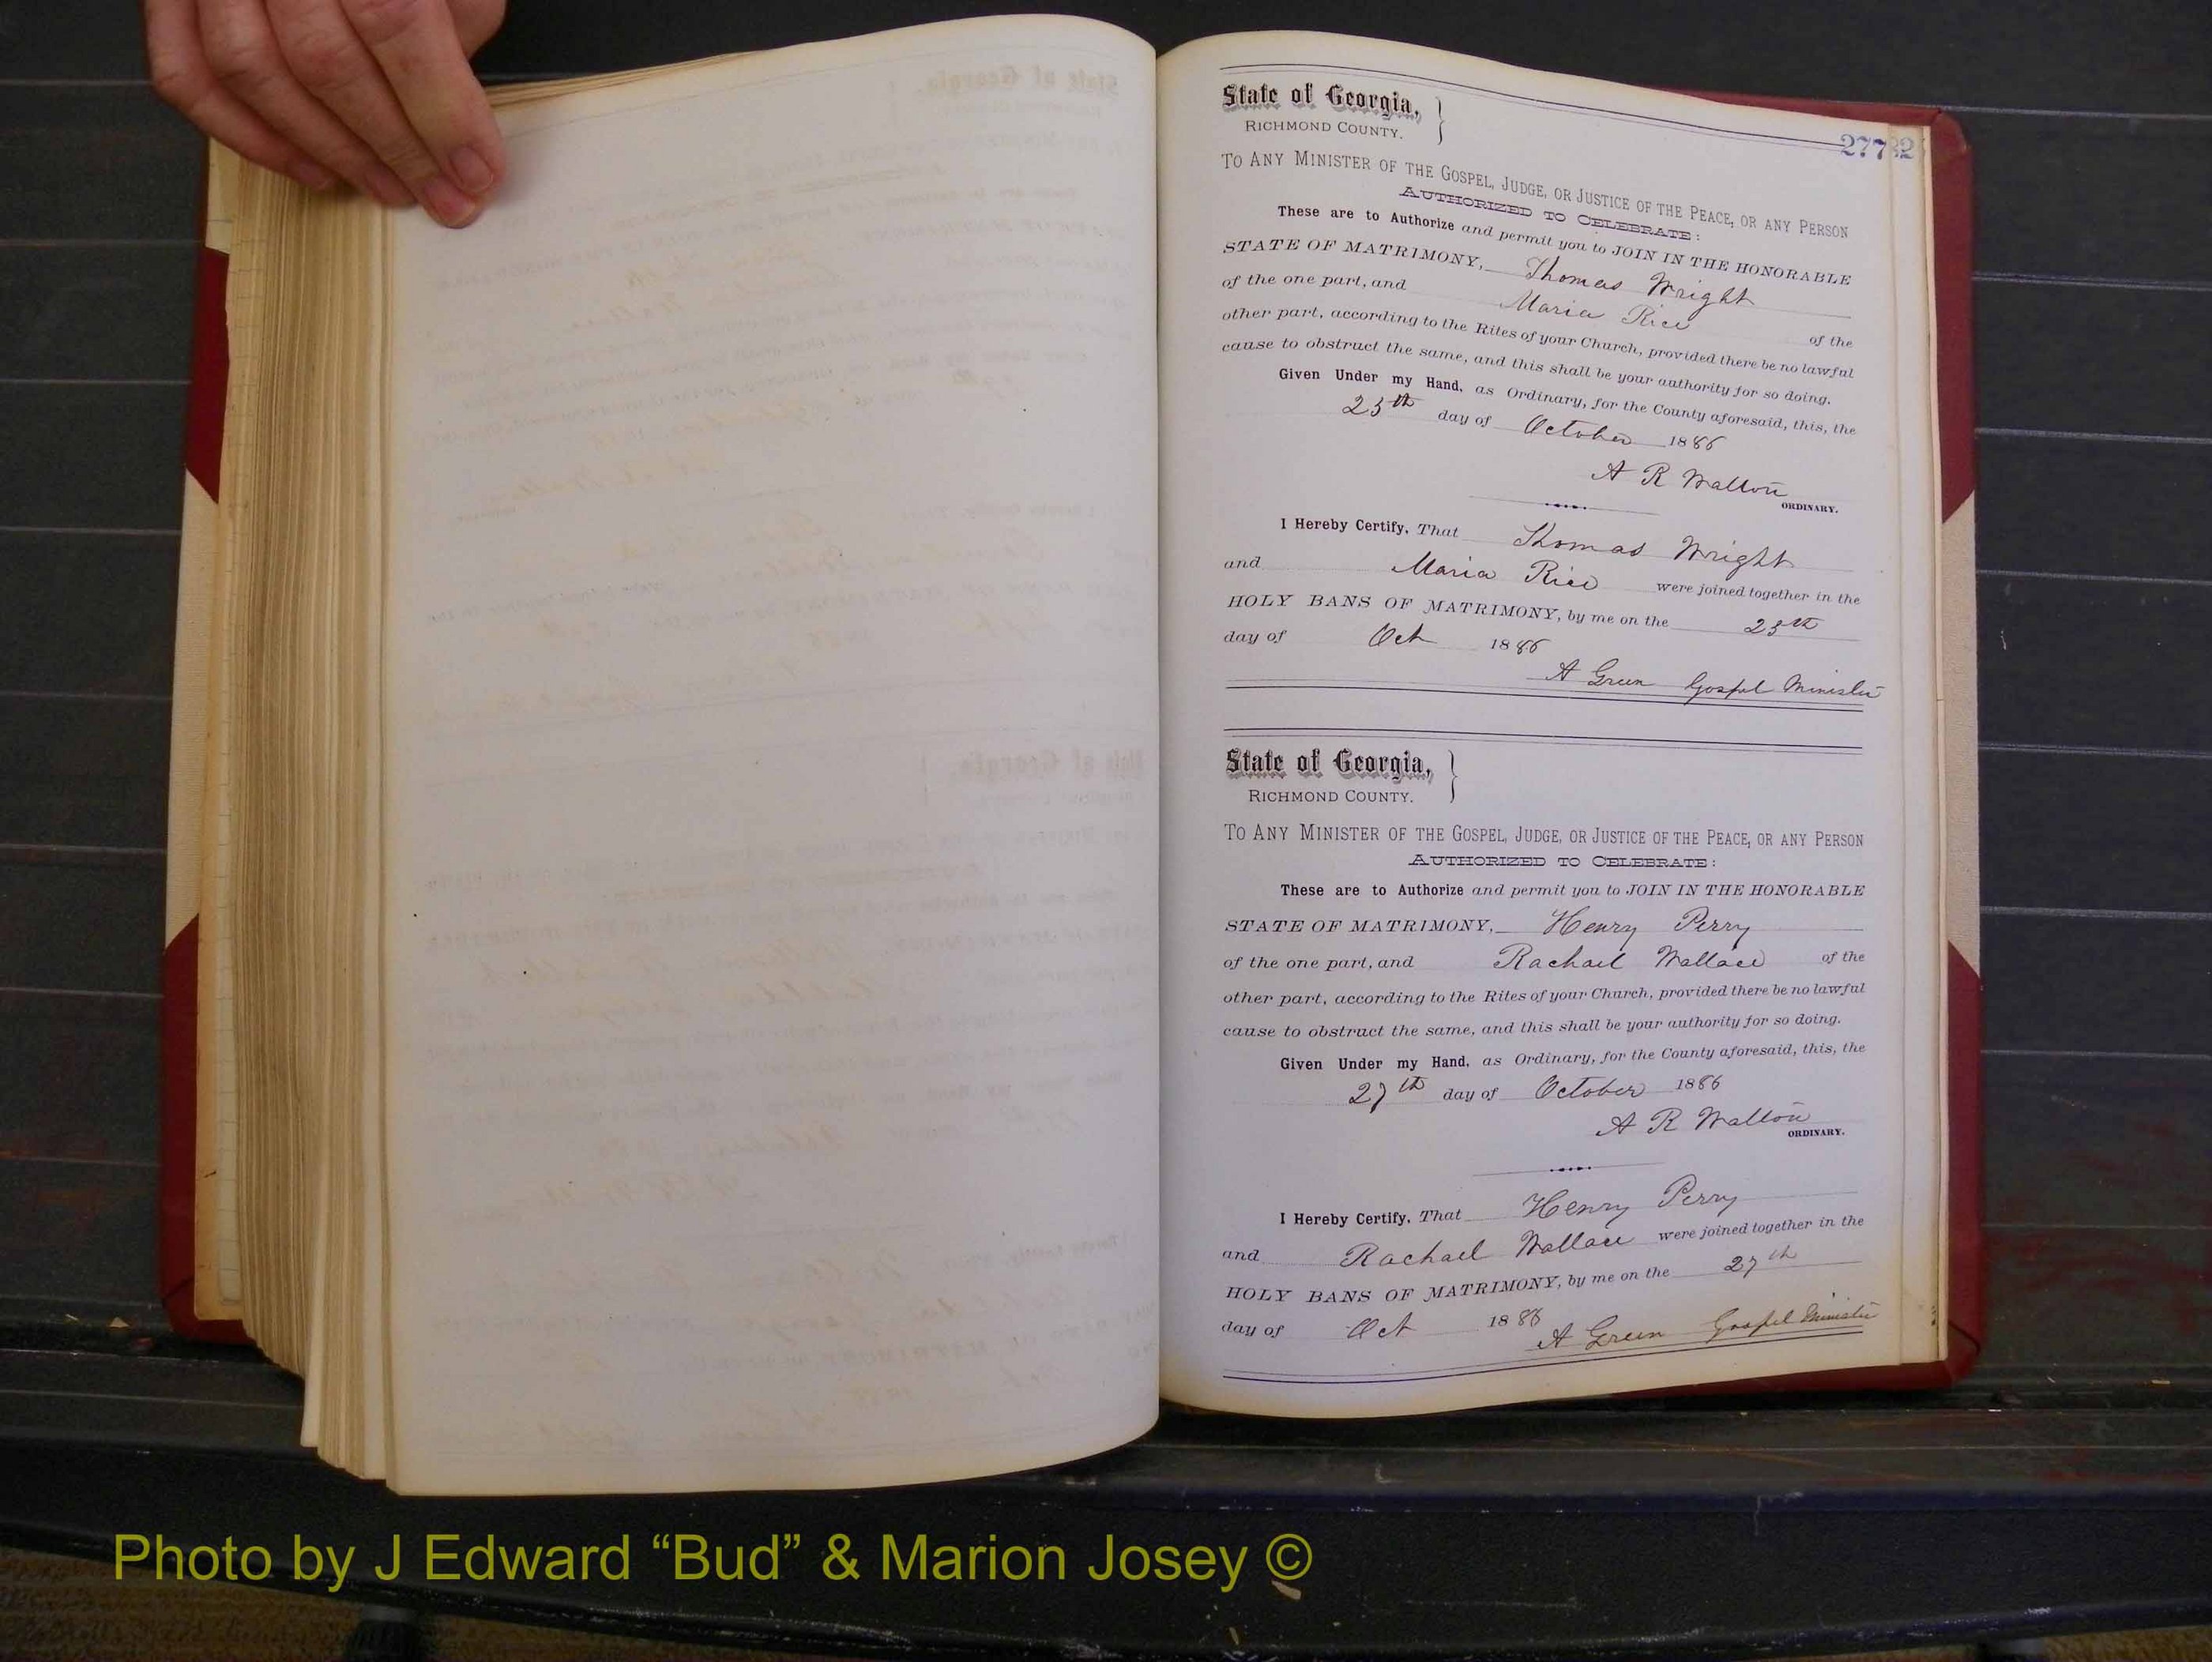 277
State of Georgia, }
RICHMOND COUNTY.
TO ANY MINISTER OF THE GOSPEL, JUDGE, OR JUSTICE OF THE PEACE, OR ANY PERSON
AUTHORIZED TO CELEBRATE:
These are to Authorize and permit you to JOIN IN THE HONORABLE
STATE OF MATRIMONY, Thomas Wright
of the one part, and Maria Rice of the
other part, according to the Rites of your Church, provided there be no lawful
cause to obstruct the same, and this shall be your authority for so doing.
Given Under my Hand, as Ordinary, for the County aforesaid, this, the
25th day of October 1886
A R Walton
ORDINARY.
I Hereby Certify, That Thomas Wright
and Maria Rice were joined together in the
HOLY BANS OF MATRIMONY, by me on the 25th
day of Oct 1886
A Green Gospel Minister
State of Georgia, }
RICHMOND COUNTY.
TO ANY MINISTER OF THE GOSPEL, JUDGE, OR JUSTICE OF THE PEACE, OR ANY PERSON
AUTHORIZED TO CELEBRATE:
These are to Authorize and permit you to JOIN IN THE HONORABLE
STATE OF MATRIMONY, Henry Perry
of the one part, and Rachael Wallace of the
other part, according to the Rites of your Church, provided there be no lawful
cause to obstruct the same, and this shall be your authority for so doing.
Given Under my Hand, as Ordinary, for the County aforesaid, this, the
27th day of October 1886
A R Walton
ORDINARY.
I Hereby Certify, That Henry Perry
and Rachael Wallace were joined together in the
HOLY BANS OF MATRIMONY, by me on the 27th
day of Oct 1886
A Green Gospel Minister
Photo by J Edward “Bud” & Marion Josey ©